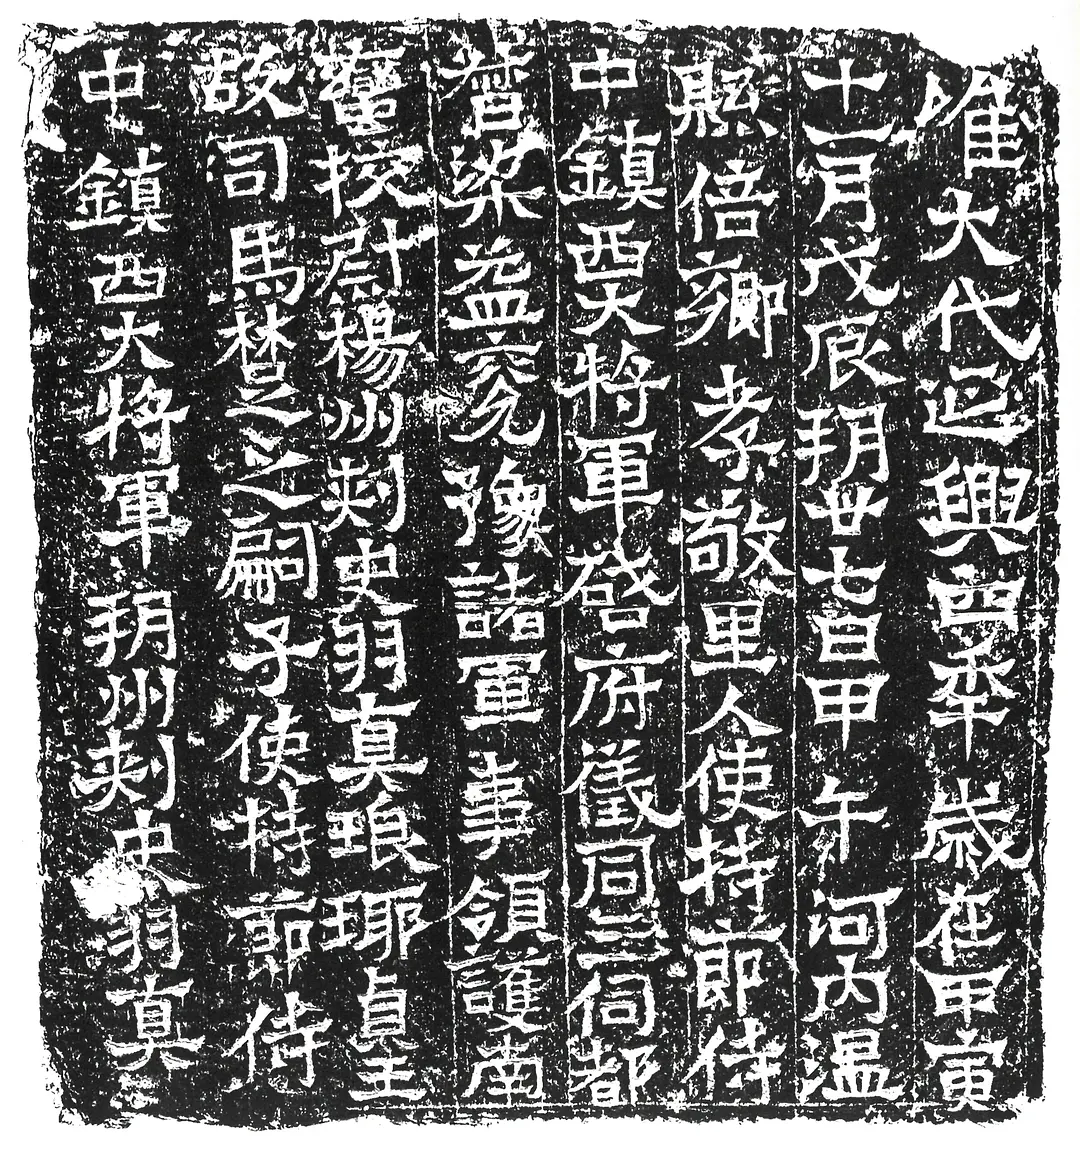 唯大代延興四年歲在甲寅
十一月戊辰朔廿七日甲午河內溫
縣倍鄉孝敬里人使持節侍
中鎮西大將軍啟府儀同三伺都
督梁益兗豫諸軍事領護南
蠻校尉楊州刺史羽真琅琊貞王
故司馬楚之之嗣子使持節侍
中鎮西大將軍朔州刺史羽真